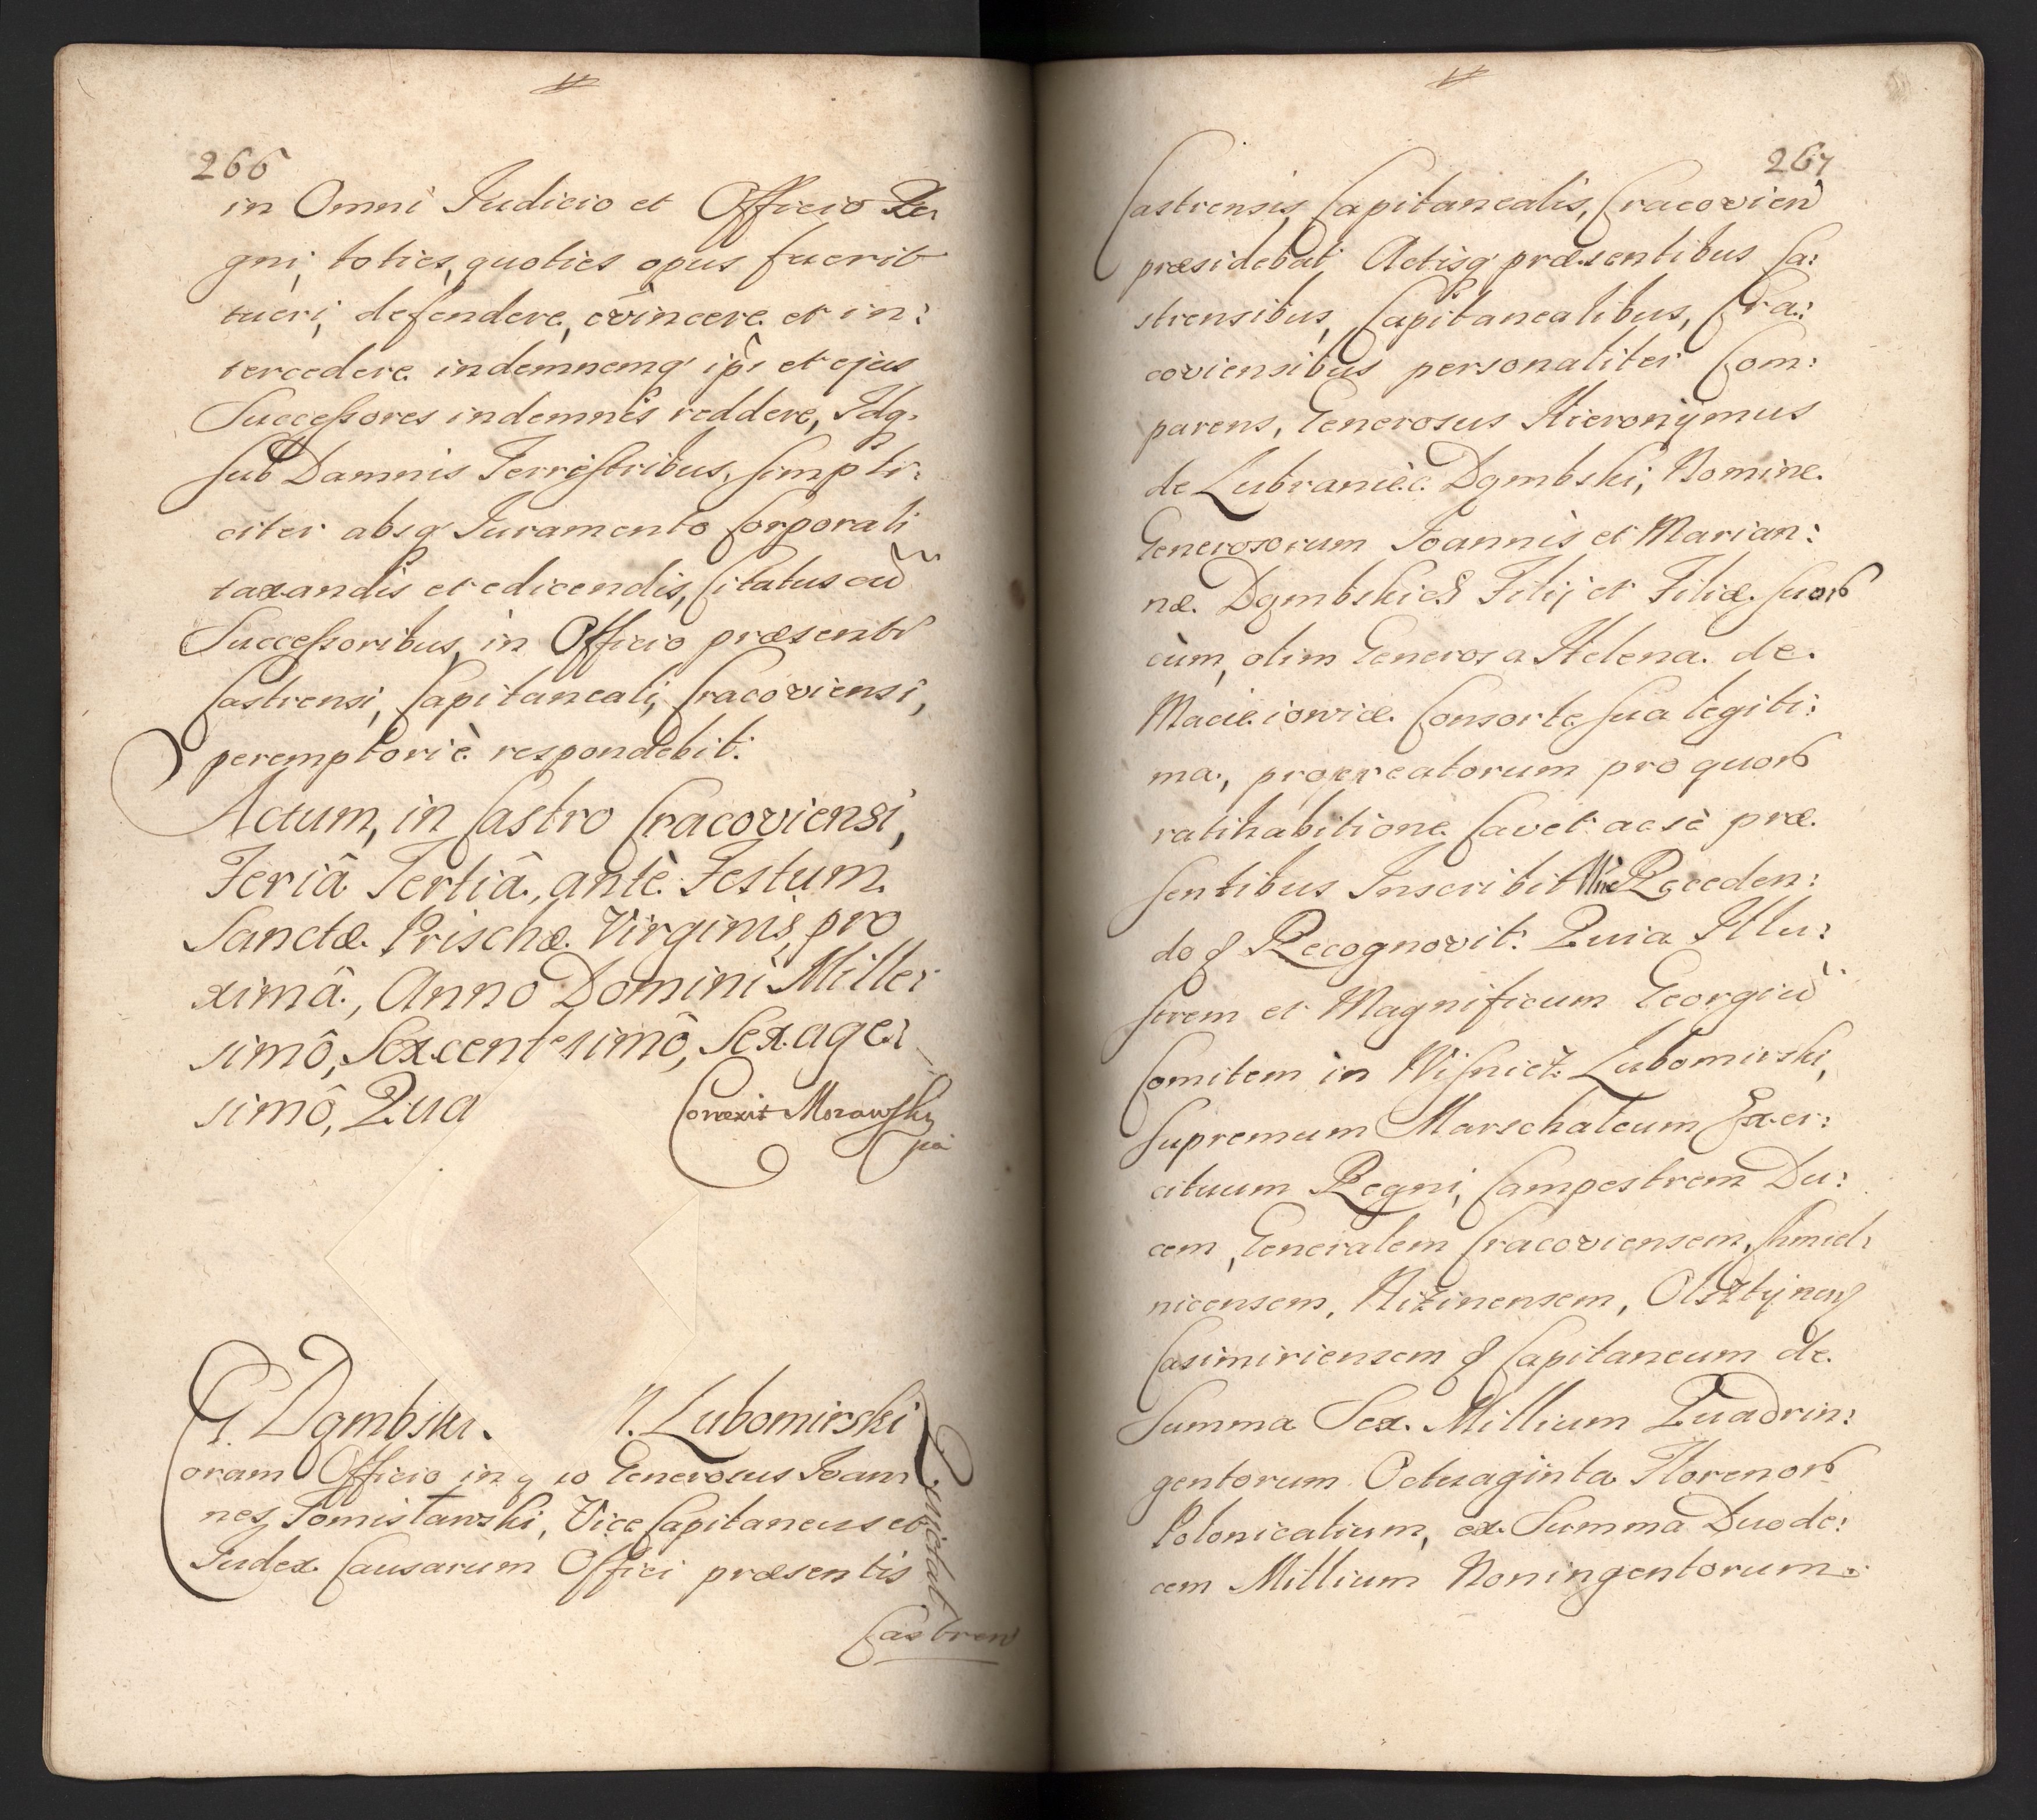 266
in Omni Iudicio et Officio Re:
gni, toties, quoties opus fuerit
tueri, defendere, evincere et in:
tercedere indemnemq ip̃i et ejus
Successores indemnes reddere, Idq.
sub Damnis Terrestribus, simpli:
citer absq Iuramento Corporali
taxandis et edicendis, Citatus cũ
Successoribus in Officio præsenti
Castrensi, Capitaneali, Cracoviensi,
peremptoriè respondebit.
Actum, in Castro Cracoviensi,
Feriâ Tertiâ, antè Festum
Sanctæ Prischæ Virginis, pro
ximâ, Anno Domini Mille:
simô, Sexcentesimô, Sexage:
simô, Qua
Correxit Morawski
G. Dąmbski. N. Lubomirski
oram Officio in q io Generosus Ioan
nes Tomisławski, Vice Capitaneus et
Iudex Causarum Offici præsentis
Castren
267
Castrensis, Capitanealis, Cracovien
præsidebat Actisq præsentibus Ca:
strensibus, Capitanealibus, Cra:
coviensibus personaliter Com:
parens, Generosus Hieronÿmus
de Lubraniec Dąmbski, Nomine
Generosorum Ioannis et Marian:
næ Dąmbskich Filij et Filiæ suorũ
cùm, olim Generosa Helena de
Macieiowicæ Consorte sua legiti:
ma, procreatorum pro quorũ
ratihabitione Cavet ac sè præ
sentibus Inscribit Nil Receden:
do & Recognovit: Quia Illu:
strem et Magnificum Georgiũ
Comitem in Wisnicz Lubomirski,
Supremum Marschalcum Exer:
cituum Regni, Campestrem Du:
cem, Generalem Cracoviensem, Chmiel:
nicensem, Niżinensem, Olsztÿnen
Casimiriensem & Capitaneum de
Summa Sex Millium Quadrin:
gentorum Octuaginta Florenorũ
Polonicalium, ex Summa Duode:
cem Millium Noningentorum